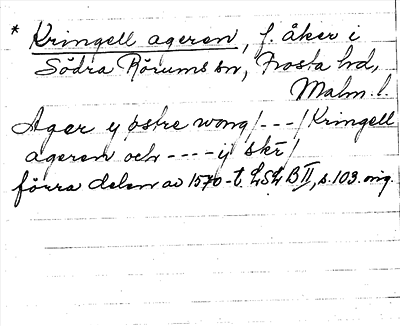 * Kringell ageren, f. åker i
Södra Rörums sn, Frosta hd,
Malm. l.
Ager y østre wong/---/Kringell
ageren och ---- ij skr/
förra delen av 1570-t. LSL B II, s. 103. orig.